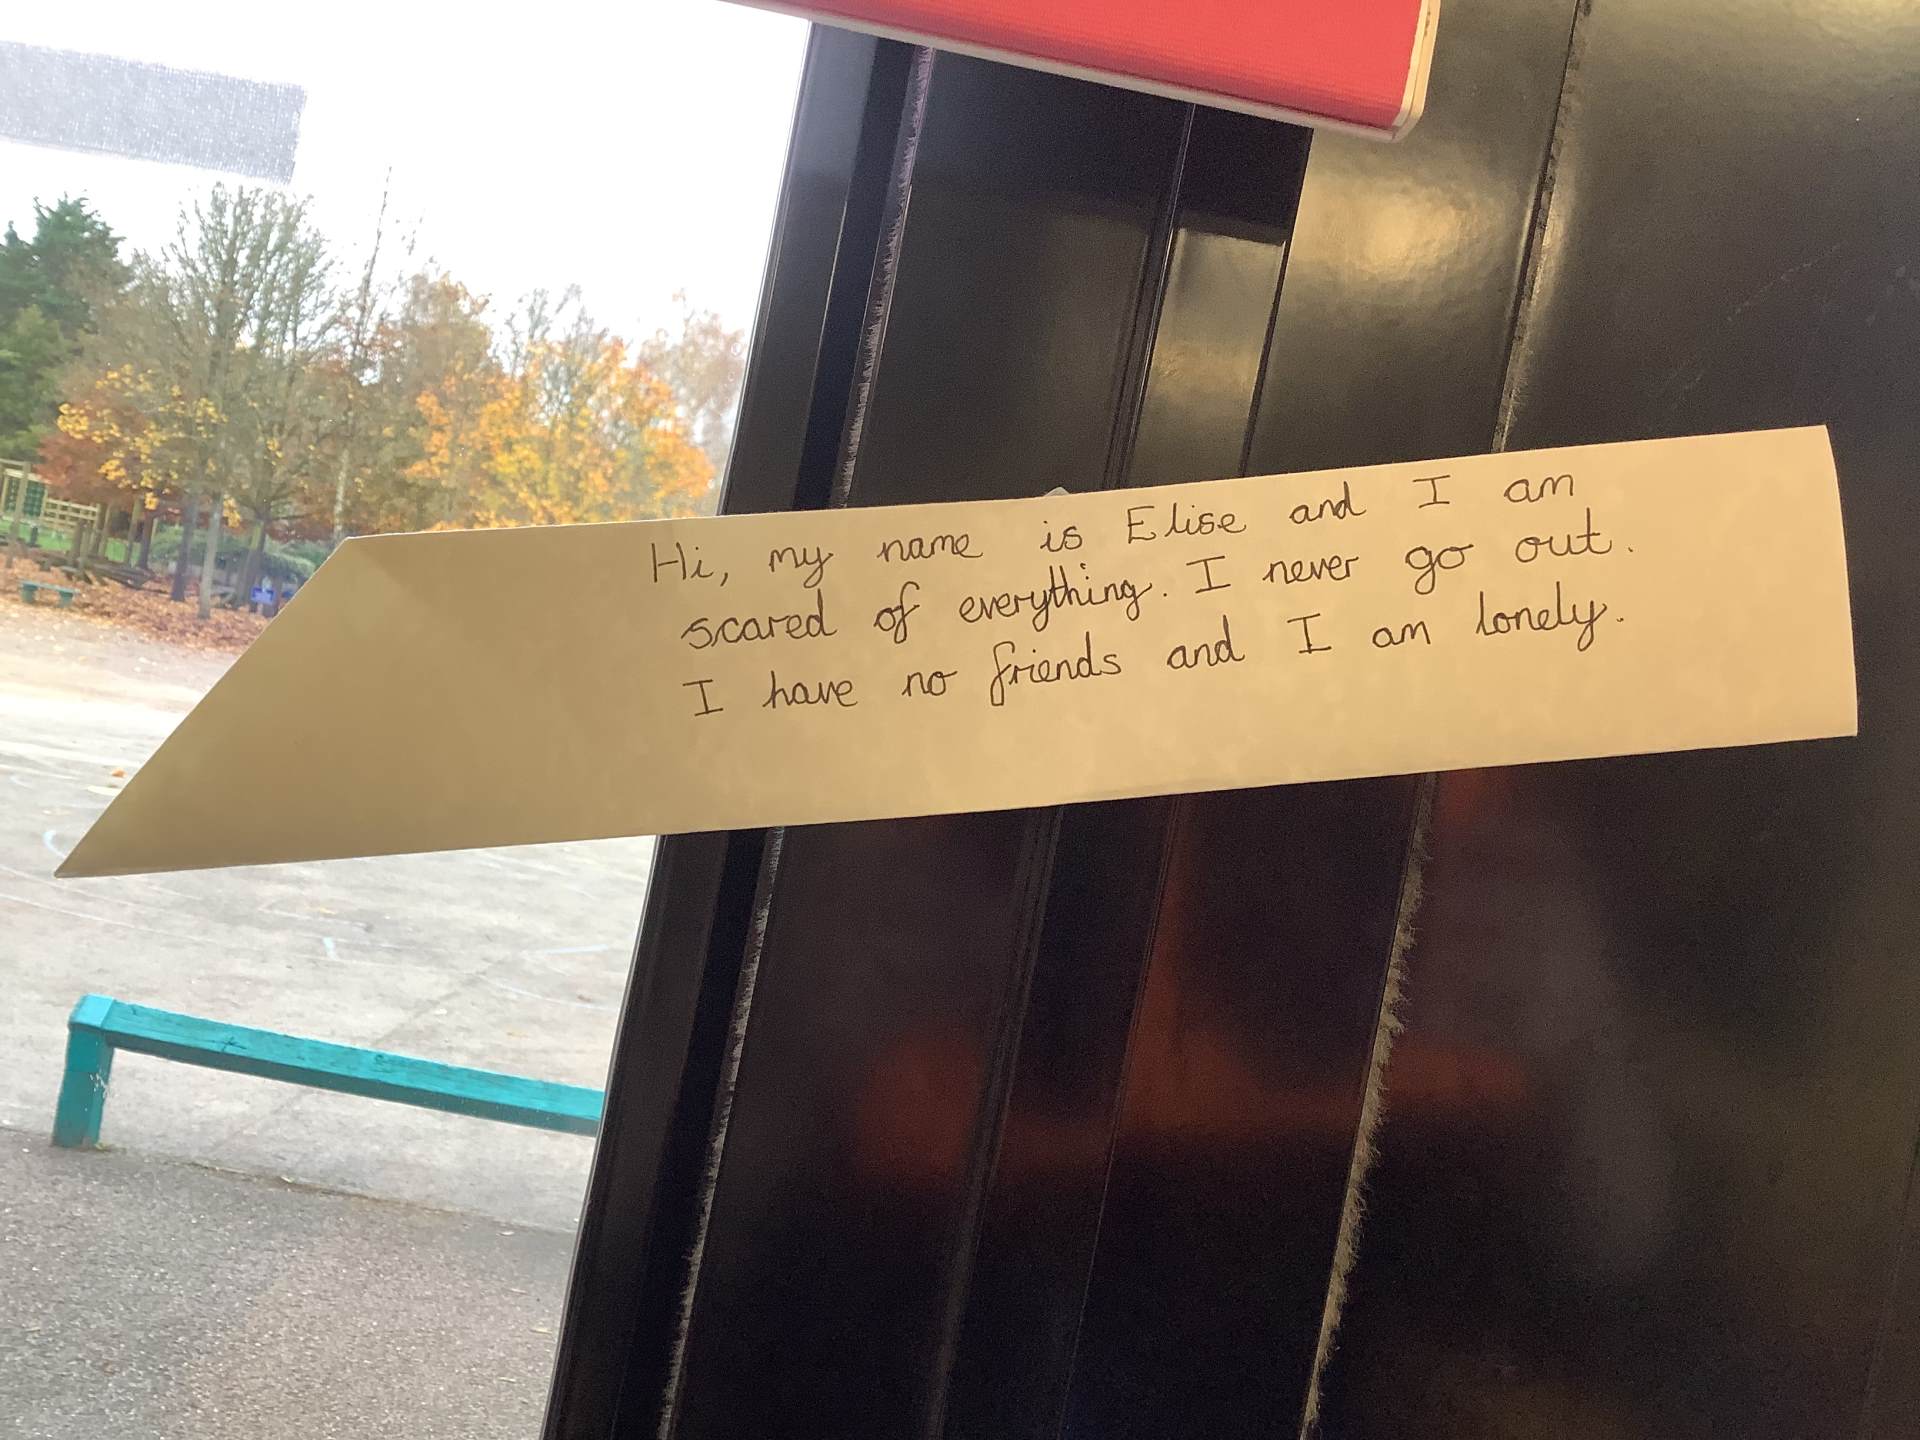 Hi, my name is Elise and I am
scared of everything. I never go out.
I have no friends and I am lonely.